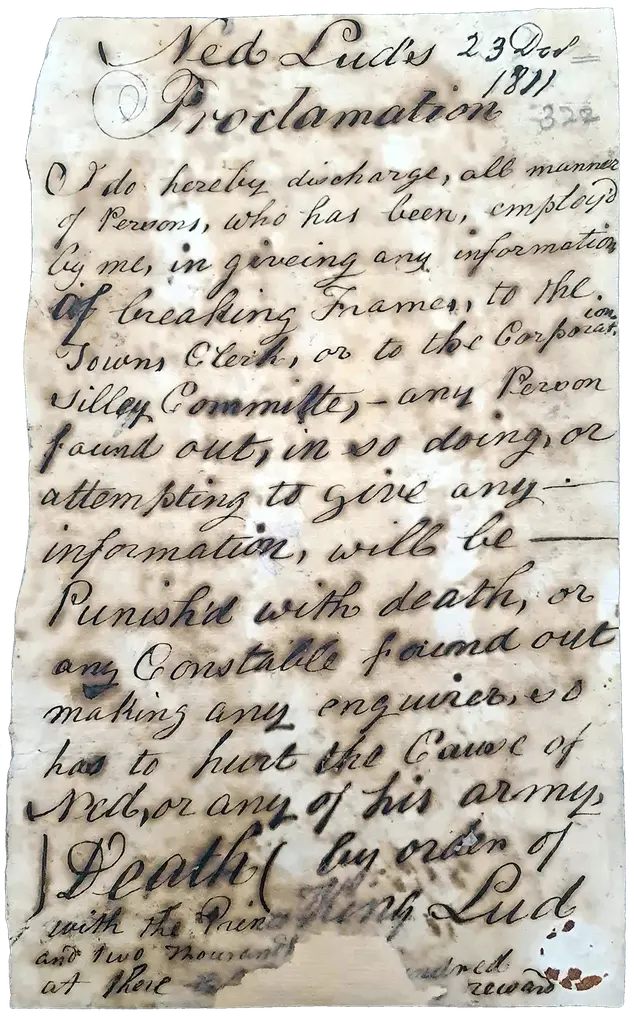 Ned Lud's 23 Decr
1811
Proclamation 322
I do hereby discharge, all manner
of Persons, who has been, employ'd
by me, in giveing any information
of breaking Frames, to the
Towns Clerk, or to the Corporation
Silley Committe, — any Person
found out, in so doing, or
attempting to give any —
information, will be —
Punish'd with death, or
any Constable found out
making any enquiries, so
has to hurt the Cause of
Ned, or any of his army,
Death by order of
King Lud
with the
and two
at there reward